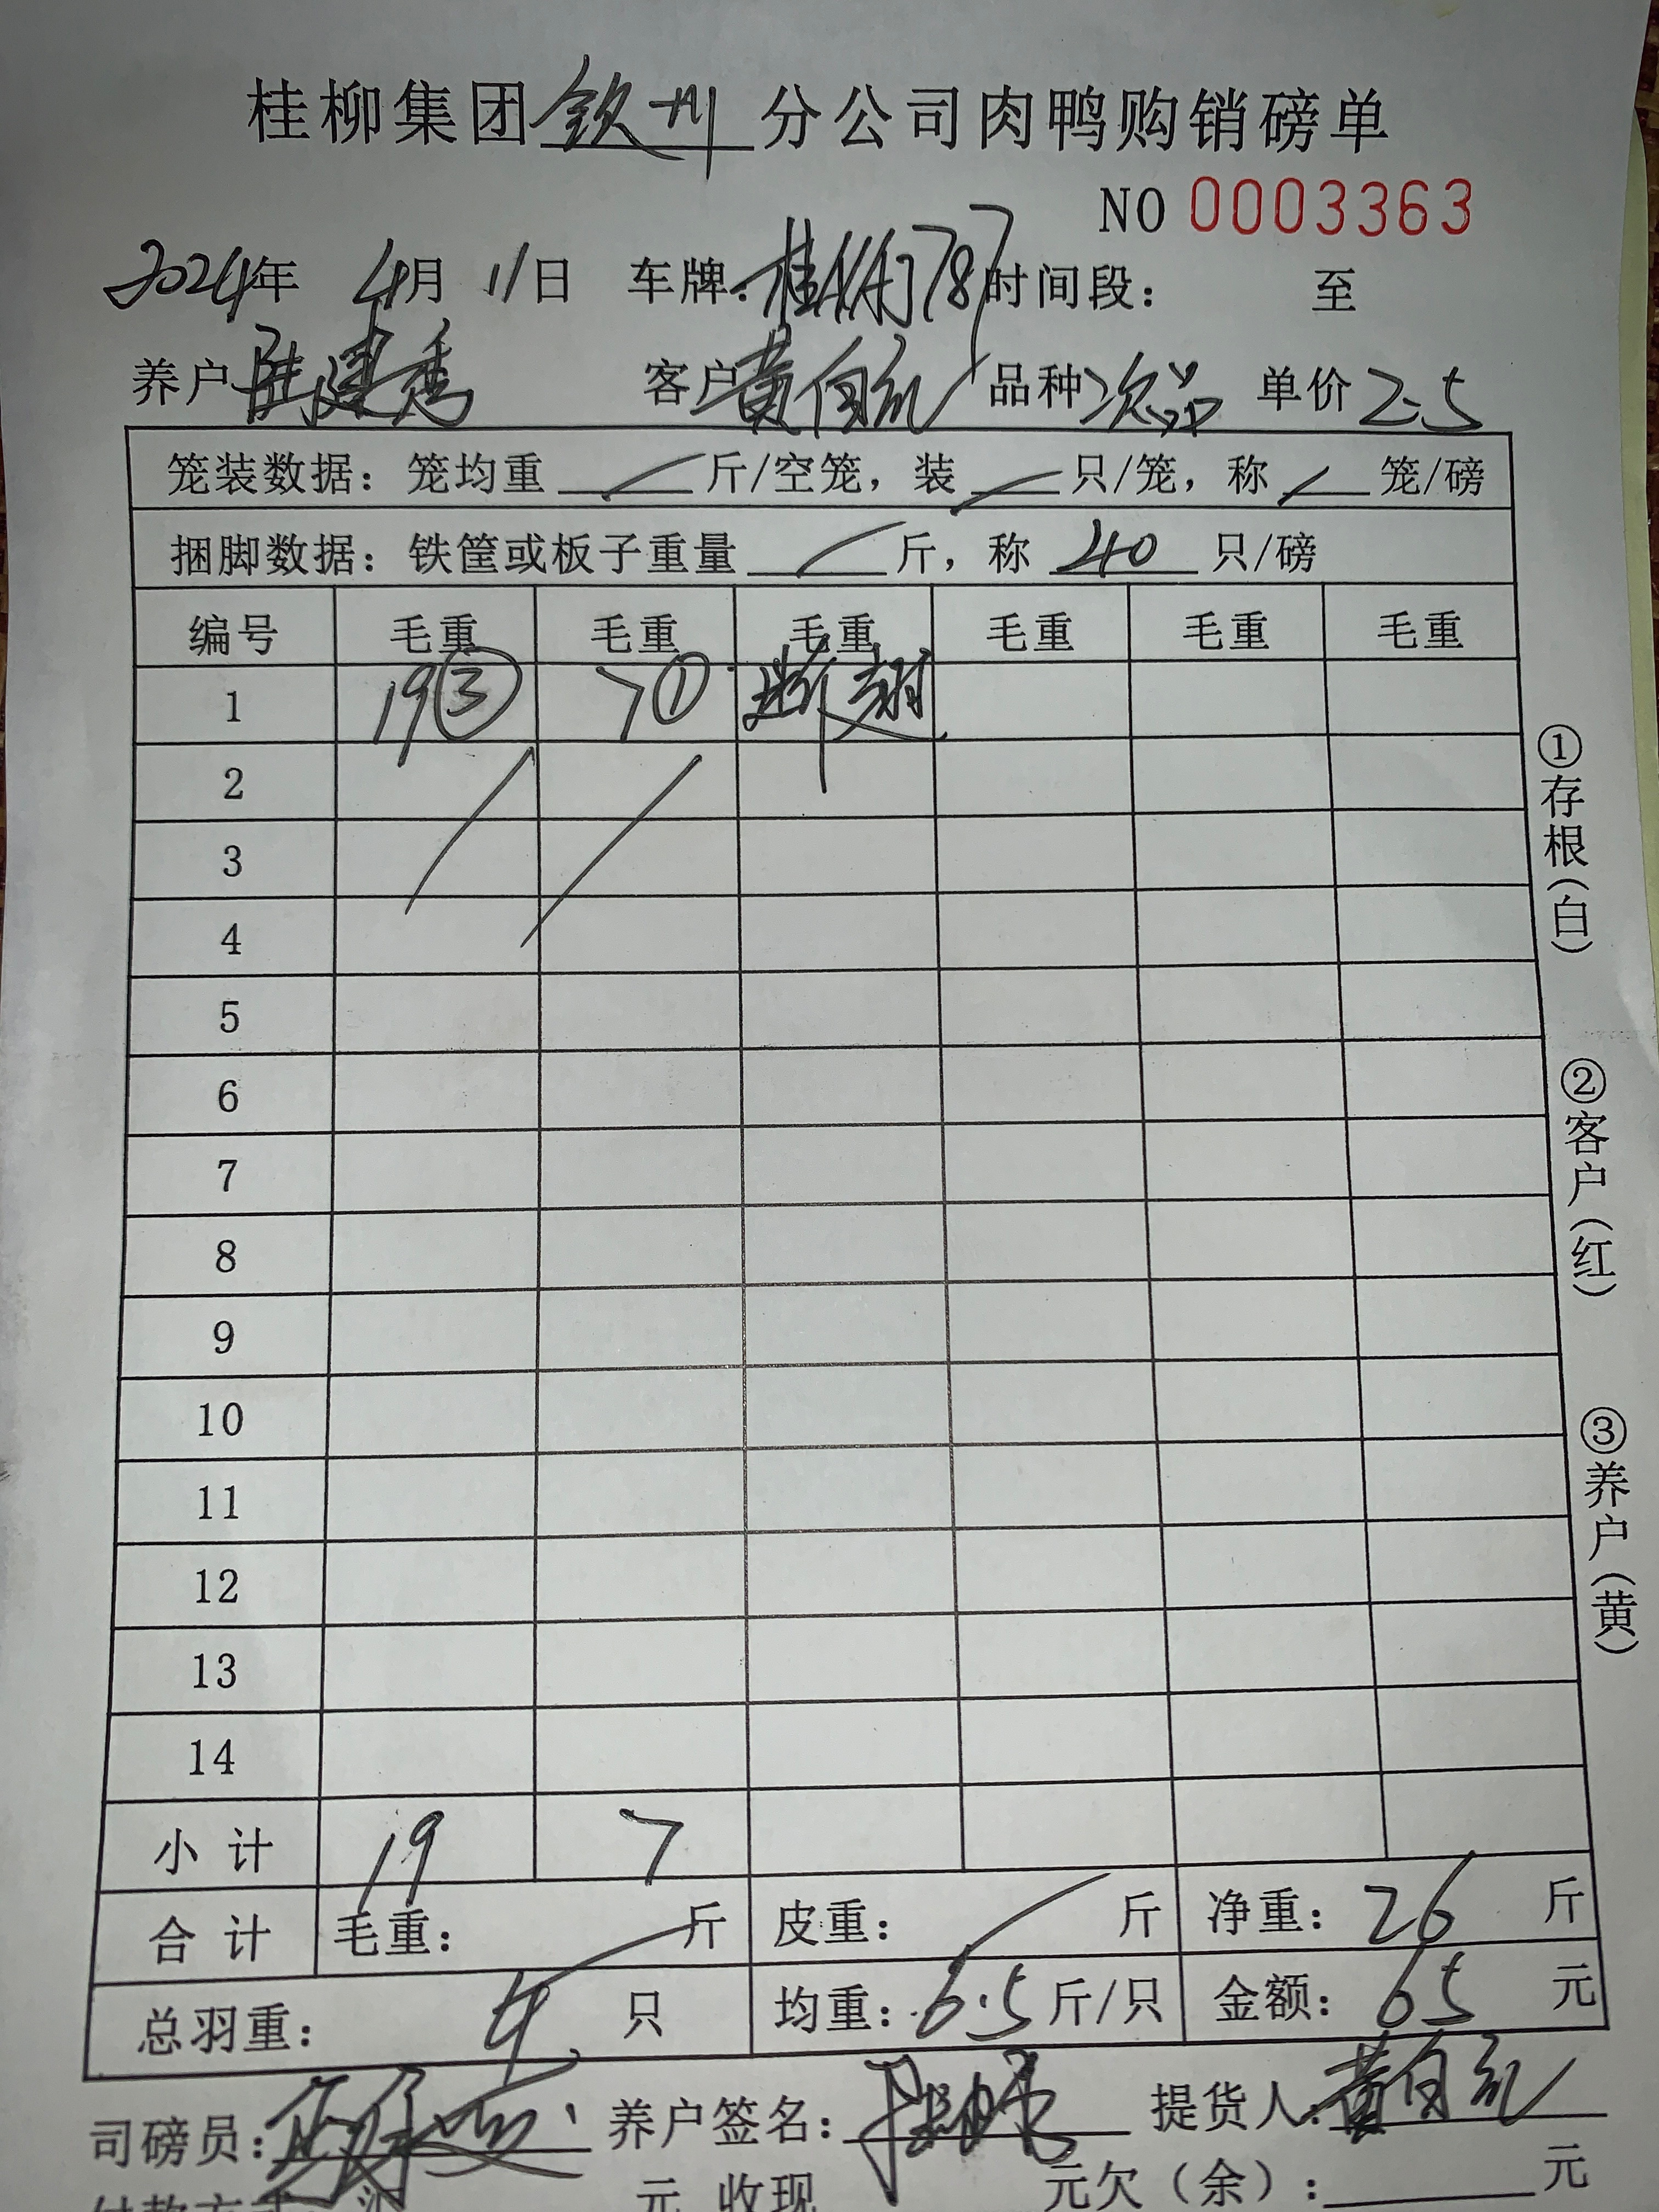 桂柳集团钦州分公司肉鸭购销磅单
NO 0003363
2024年 4月 11日 车牌:桂 787 时间段: 至
养户 陆建秀 客户 黄自 品种 次品 单价 2.5
笼装数据:笼均重 / 斤/空笼,装 / 只/笼,称 / 笼/磅
捆脚数据:铁筐或板子重量 / 斤,称 40 只/磅
编号 毛重 毛重 毛重 毛重 毛重 毛重
1 19③ 7① 断翅
2
3
4
5
6
7
8
9
10
11
12
13
14
小计 19 7
合计 毛重: / 斤 皮重: / 斤 净重: 26 斤
总羽重: 4 只 均重: 6.5 斤/只 金额: 65 元
司磅员: 养户签名: 提货人: 黄自
付款方式 元 收现 元欠(余): 元
①存根(白)
②客户(红)
③养户(黄)